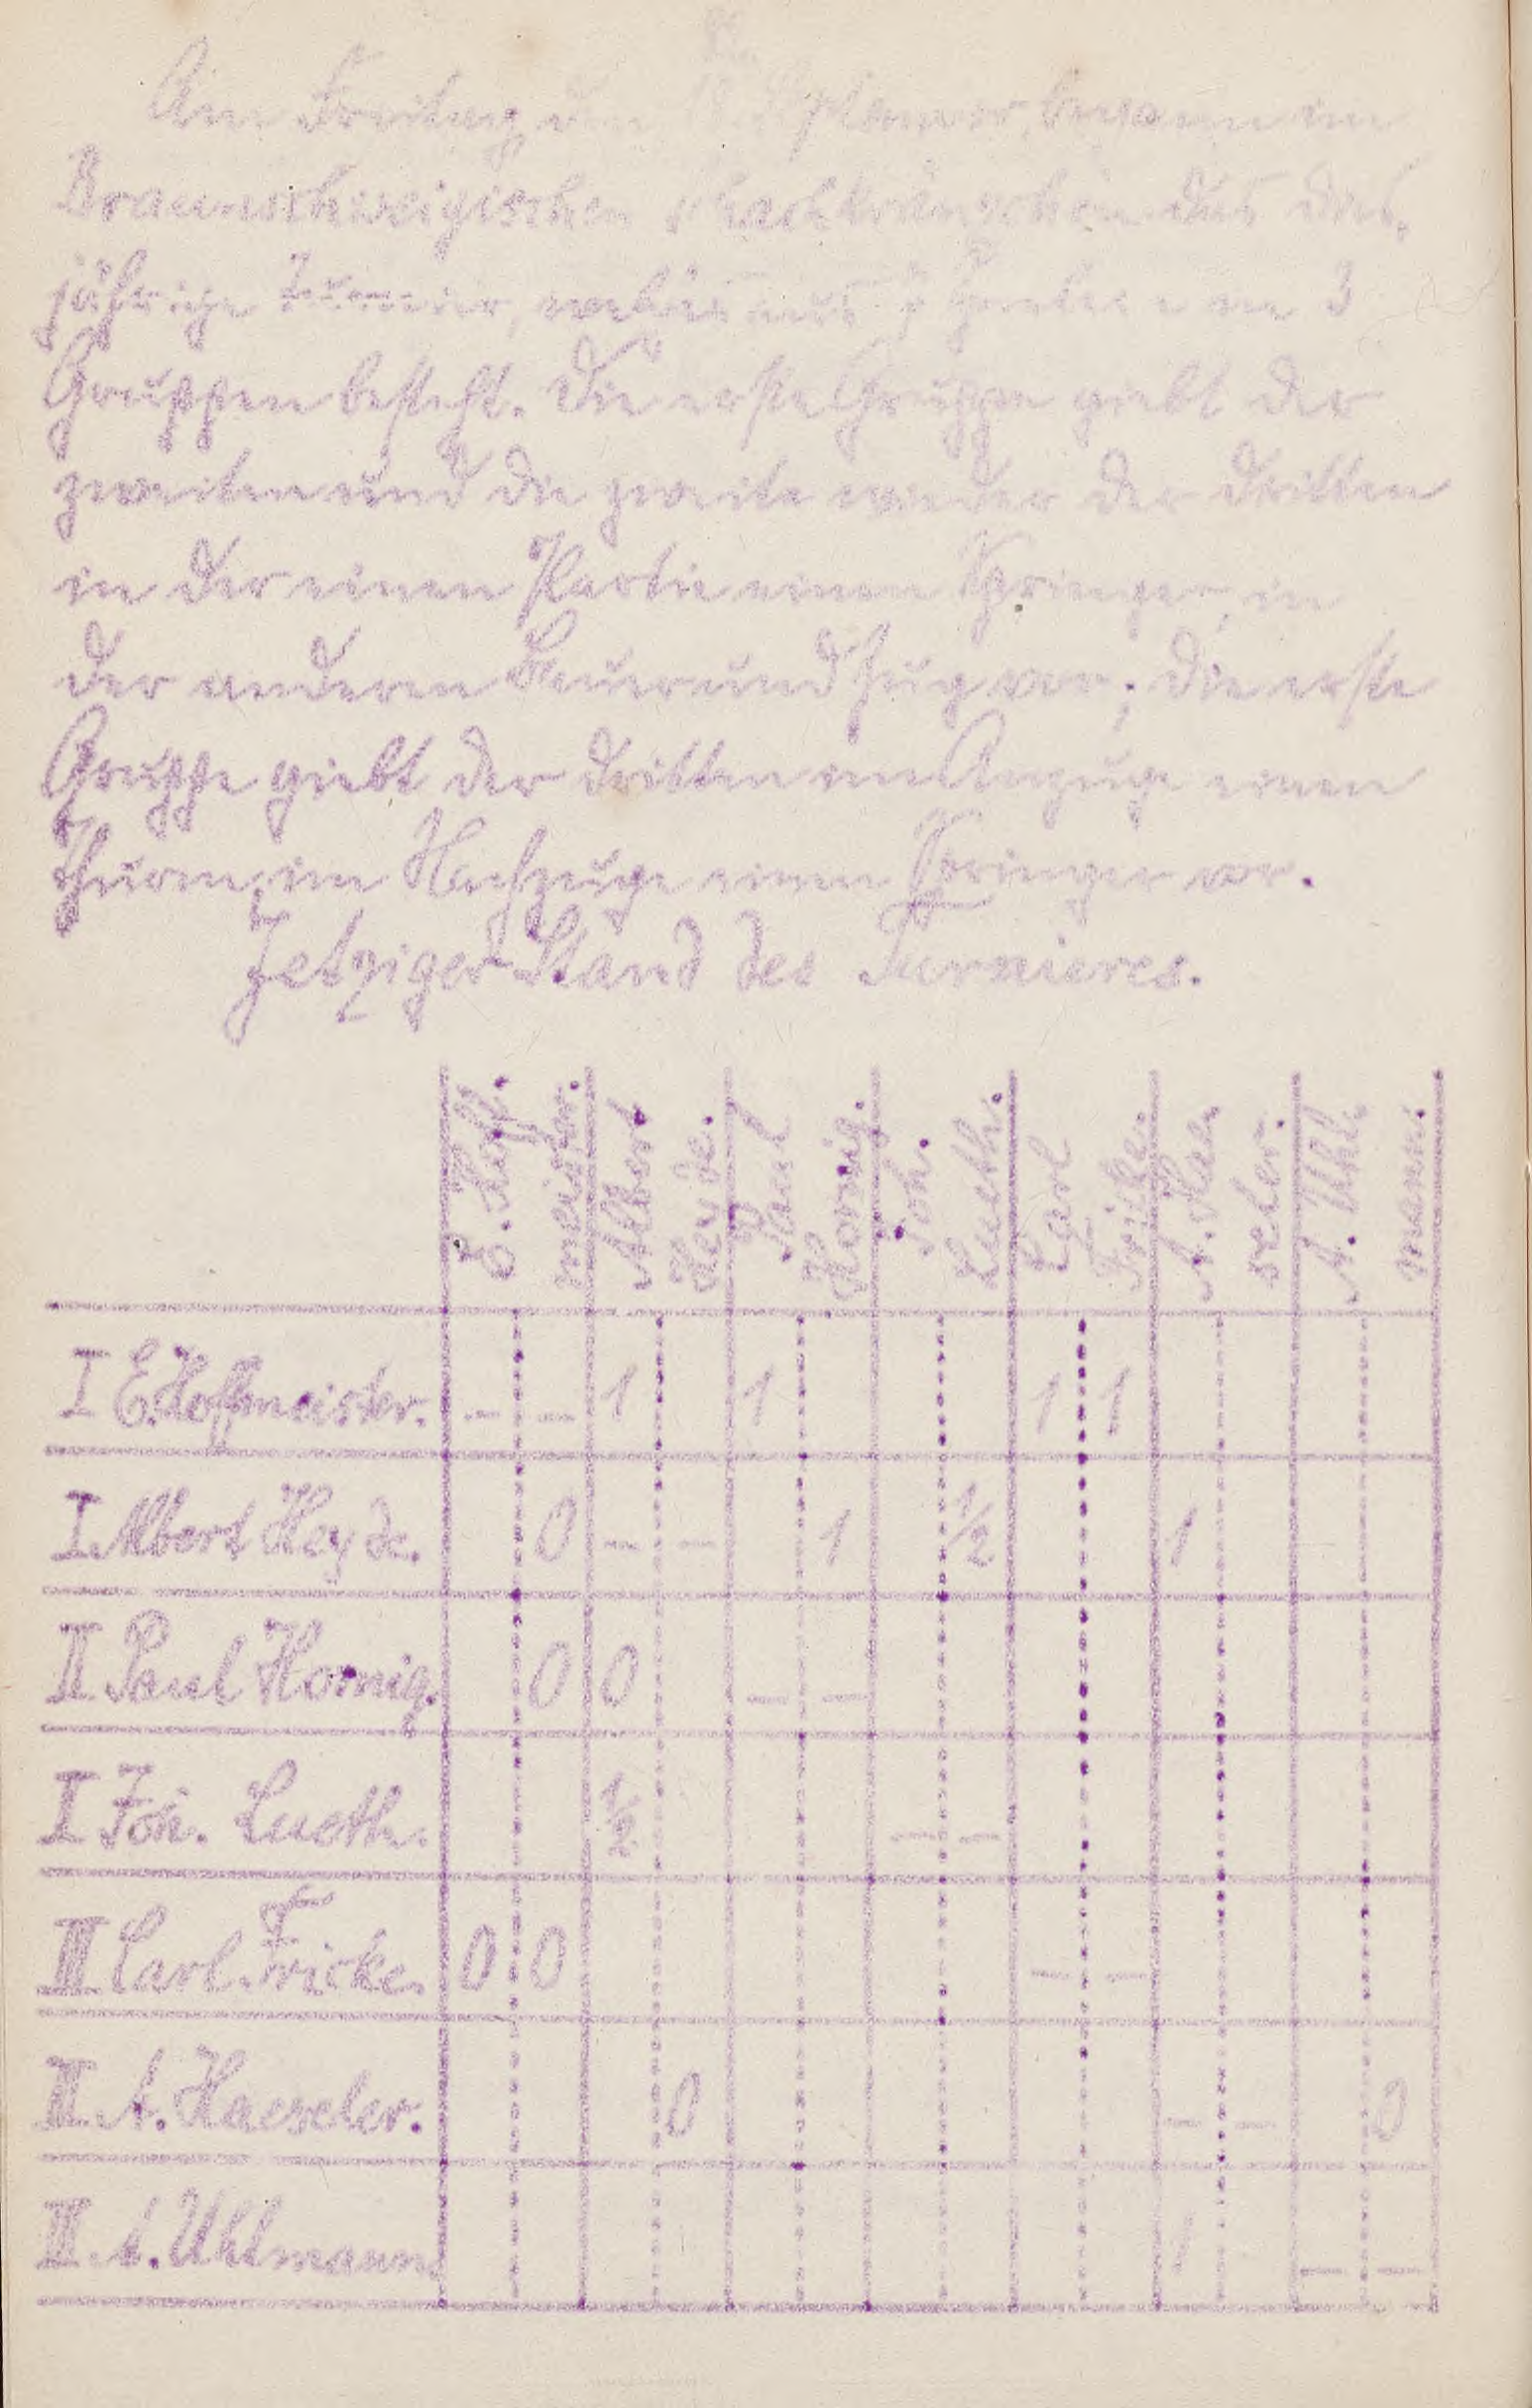 Am Freitag den September, begann im
Braunschweigischen Schachkränzchen das dies-
jährige Turnier, welches aus in 3
Gruppen besteht. Die erste Gruppe giebt der
zweiten und die zweite wieder der dritten
in der einen Partie einen Springer, in
der anderen Bauer und Zug vor; die erste
Gruppe giebt der dritten im Anzuge einen
Thurm, im Nachzuge einen Springer vor.
Jetziger Stand des Turnieres.
E. Hoff- meister. Albert Heyde. Paul Hornig. Joh. Lueth. Carl Fricke. A. Hae- seler. A. Uhl- mann.
I E. Hoffmeister. – – 1 1 1 1
I. Albert Heyde. 0 – – 1 1/2 1
II. Paul Hornig. 0 0 – –
I Joh. Lueth. 1/2 – –
III Carl. Fricke. 0 0 – –
II. A. Haeseler. 0 – – 0
III. A. Uhlmann. 1 – –